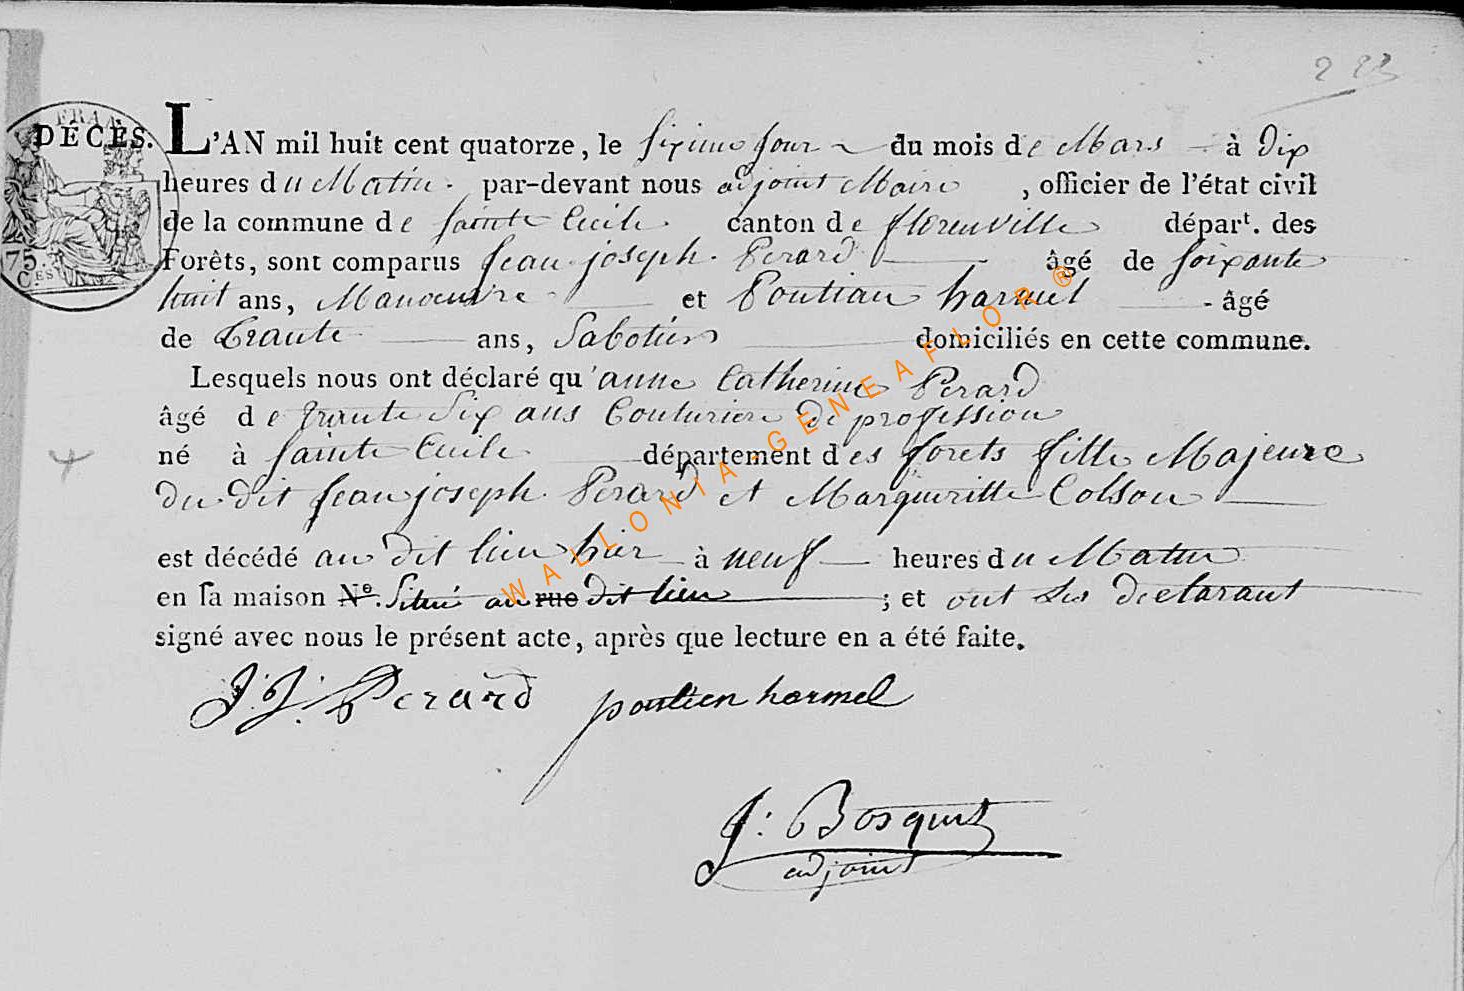 2 23
FRAN
DÉCÈS. L'AN mil huit cent quatorze, le sixime Jour du mois de Mars à dix
heures du Matin. par-devant nous adjoint Maire, officier de l'état civil
de la commune de Sainte Cecile canton de florenville départ. des
75. C.ES
Forêts, sont comparus Jean joseph Perard âgé de soixante
huit ans, Manouvre et Pontian harmel - âgé
de Trante ans, Sabotier domiciliés en cette commune.
Lesquels nous ont déclaré qu'anne Catherine Perard
âgé de Trante Six ans Couturiere de profession
né à Sainte Cecile département des forets fille Majeure
du dit Jean joseph Perard et Margueritte Colson
est décédé au dit lieu hier à neuf heures du Matin
en sa maison N.º Situé au rue dit lieu ; et ont Les declarant
signé avec nous le présent acte, après que lecture en a été faite.
J. J. Perard pontien harmel
J: Bosquet
adjoint
WALLONIA-GENEAFLOR®